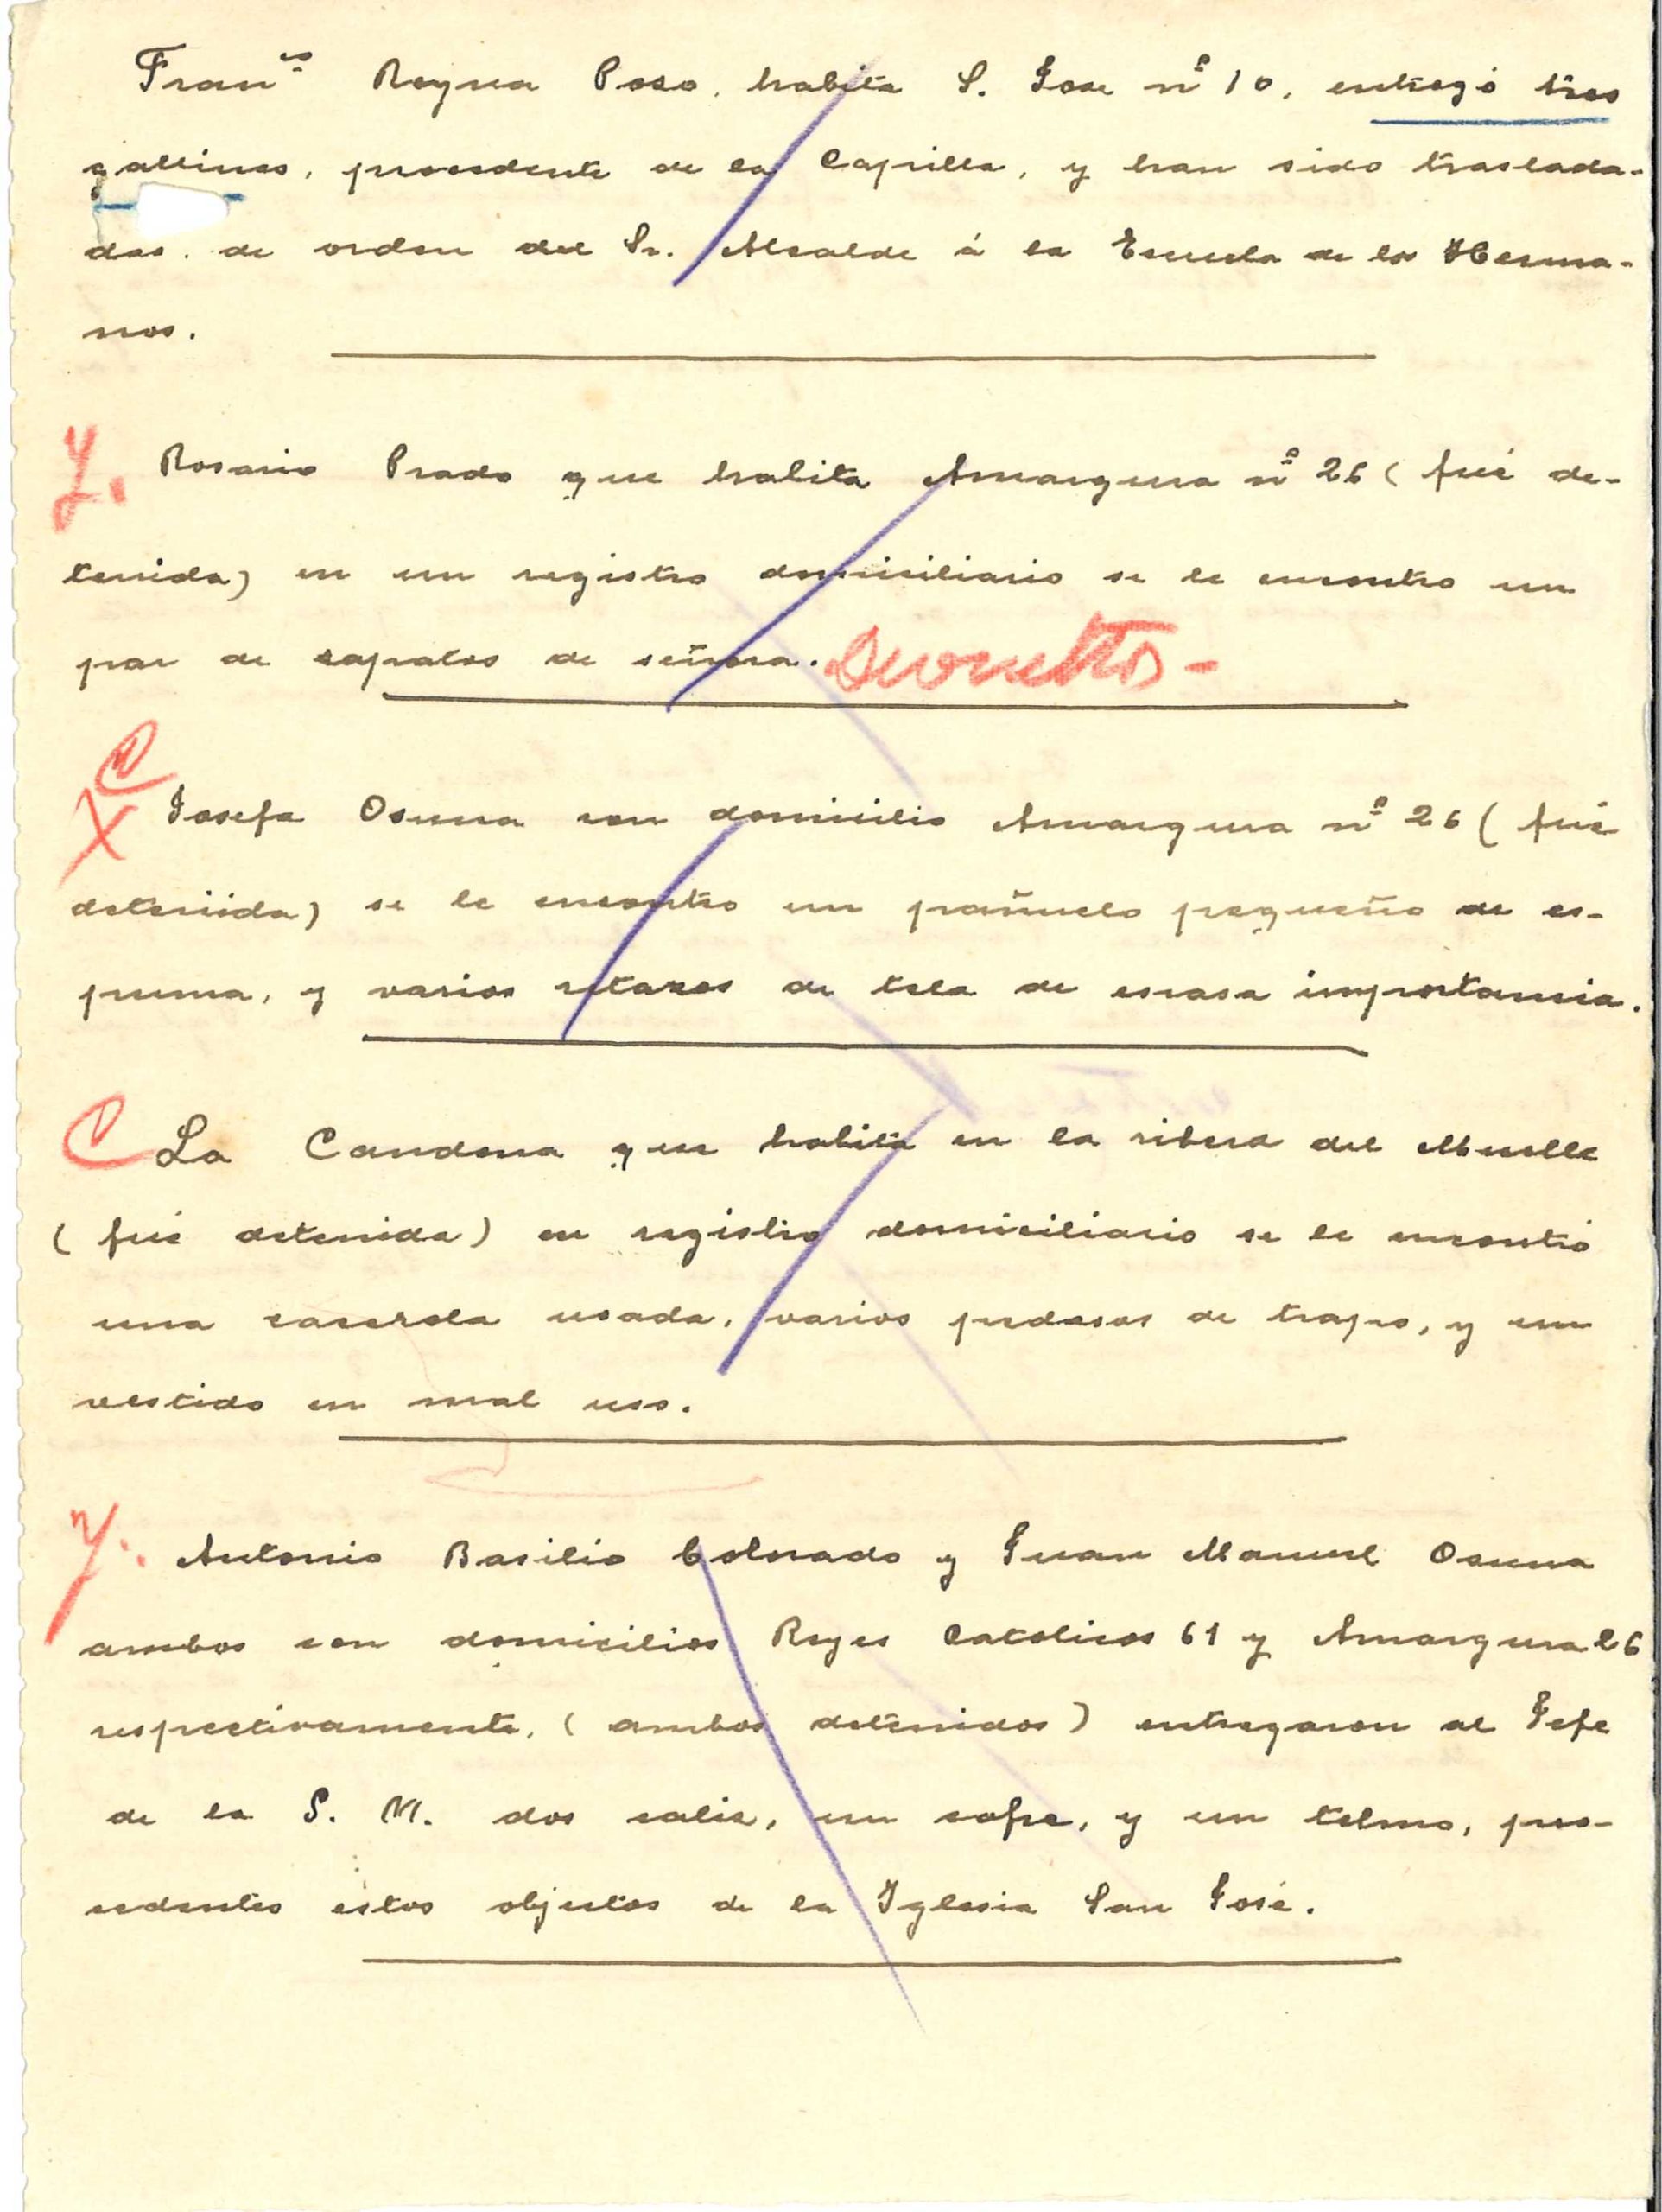 Franco Reyna Poso, habita S. Jose nº 10, entregó tres
gallinas, procedente de la Capilla, y han sido traslada-
das. de orden del Sr. Alcalde á la Escuela de los Herma-
nos.
Y. Rosario Prado que habita Amargura nº 26 ( fué de-
tenida) en un registro domiciliario se le encontro un
par de sapatos de señora. Devueltos -
C
X Josefa Osuna con domicilio Amargura nº 26 ( fué
detenida) se le encontro un pañuelo pequeño de es-
puma, y varios retazos de tela de escasa importancia.
C La Candona que habita en la ribera del Muelle
( fué detenida) en registro domiciliario se le encontró
una caserola usada, varios pedasos de trapo, y un
vestido en mal uso.
Y. Antonio Basilio Colorado y Juan Manuel Osuna
ambos con domicilios Reyes Catolicos 61 y Amargura 26
respectivamente, ( ambos detenidos ) entregaron al Jefe
de la P. M. dos caliz, un cofre, y un telmo, pro-
cedentes estos objetos de la Iglesia San José.